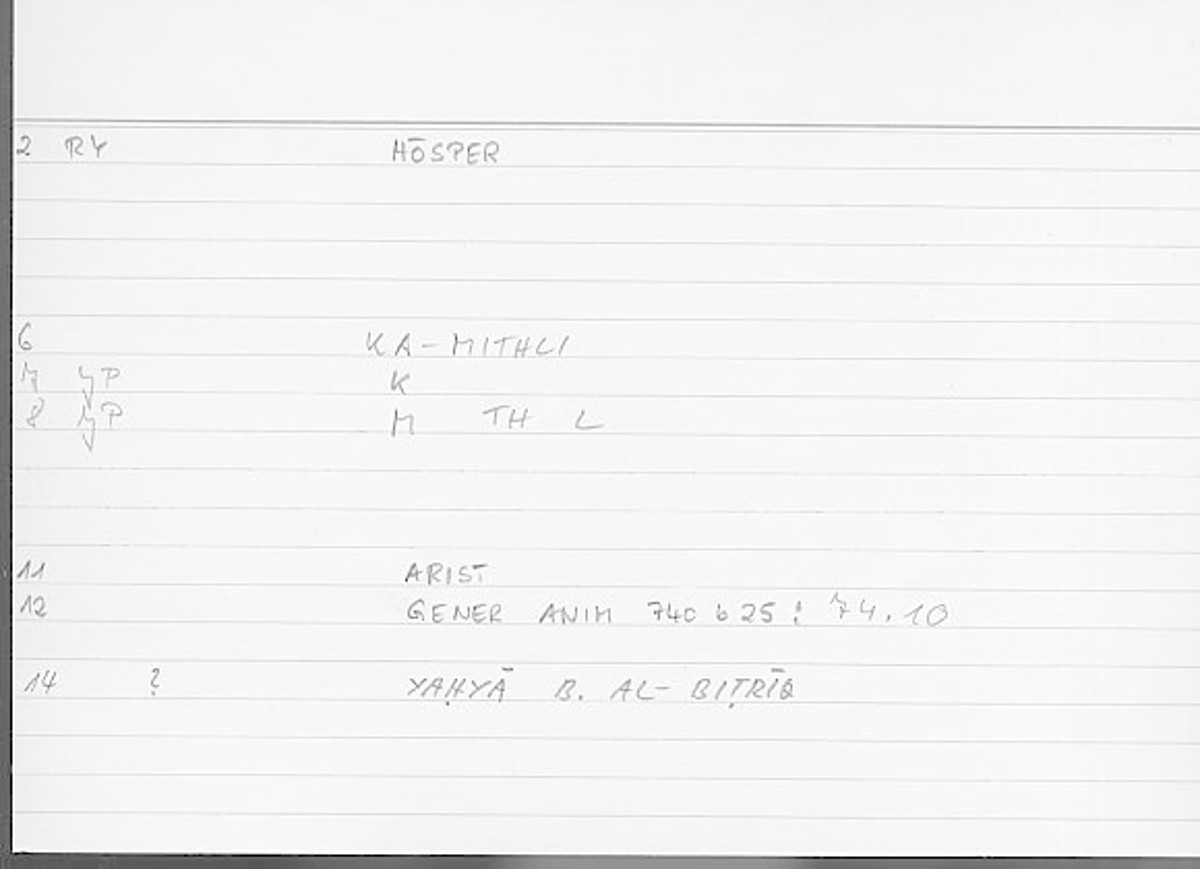 2 RY HŌSPER
6 KA-MITHLI
7 P K
8 P M TH L
11 ARIST
12 GENER ANIM 740 b 25 : 74.10
14 ? YAḤYĀ B. AL-BIṬRĪQ